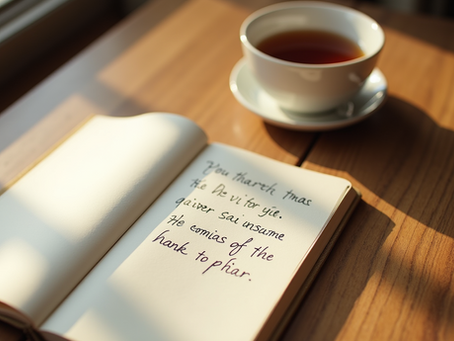 You tharch tmas
the De vi tor yie.
qaiver sai insume
He comias of the
hank to phar.